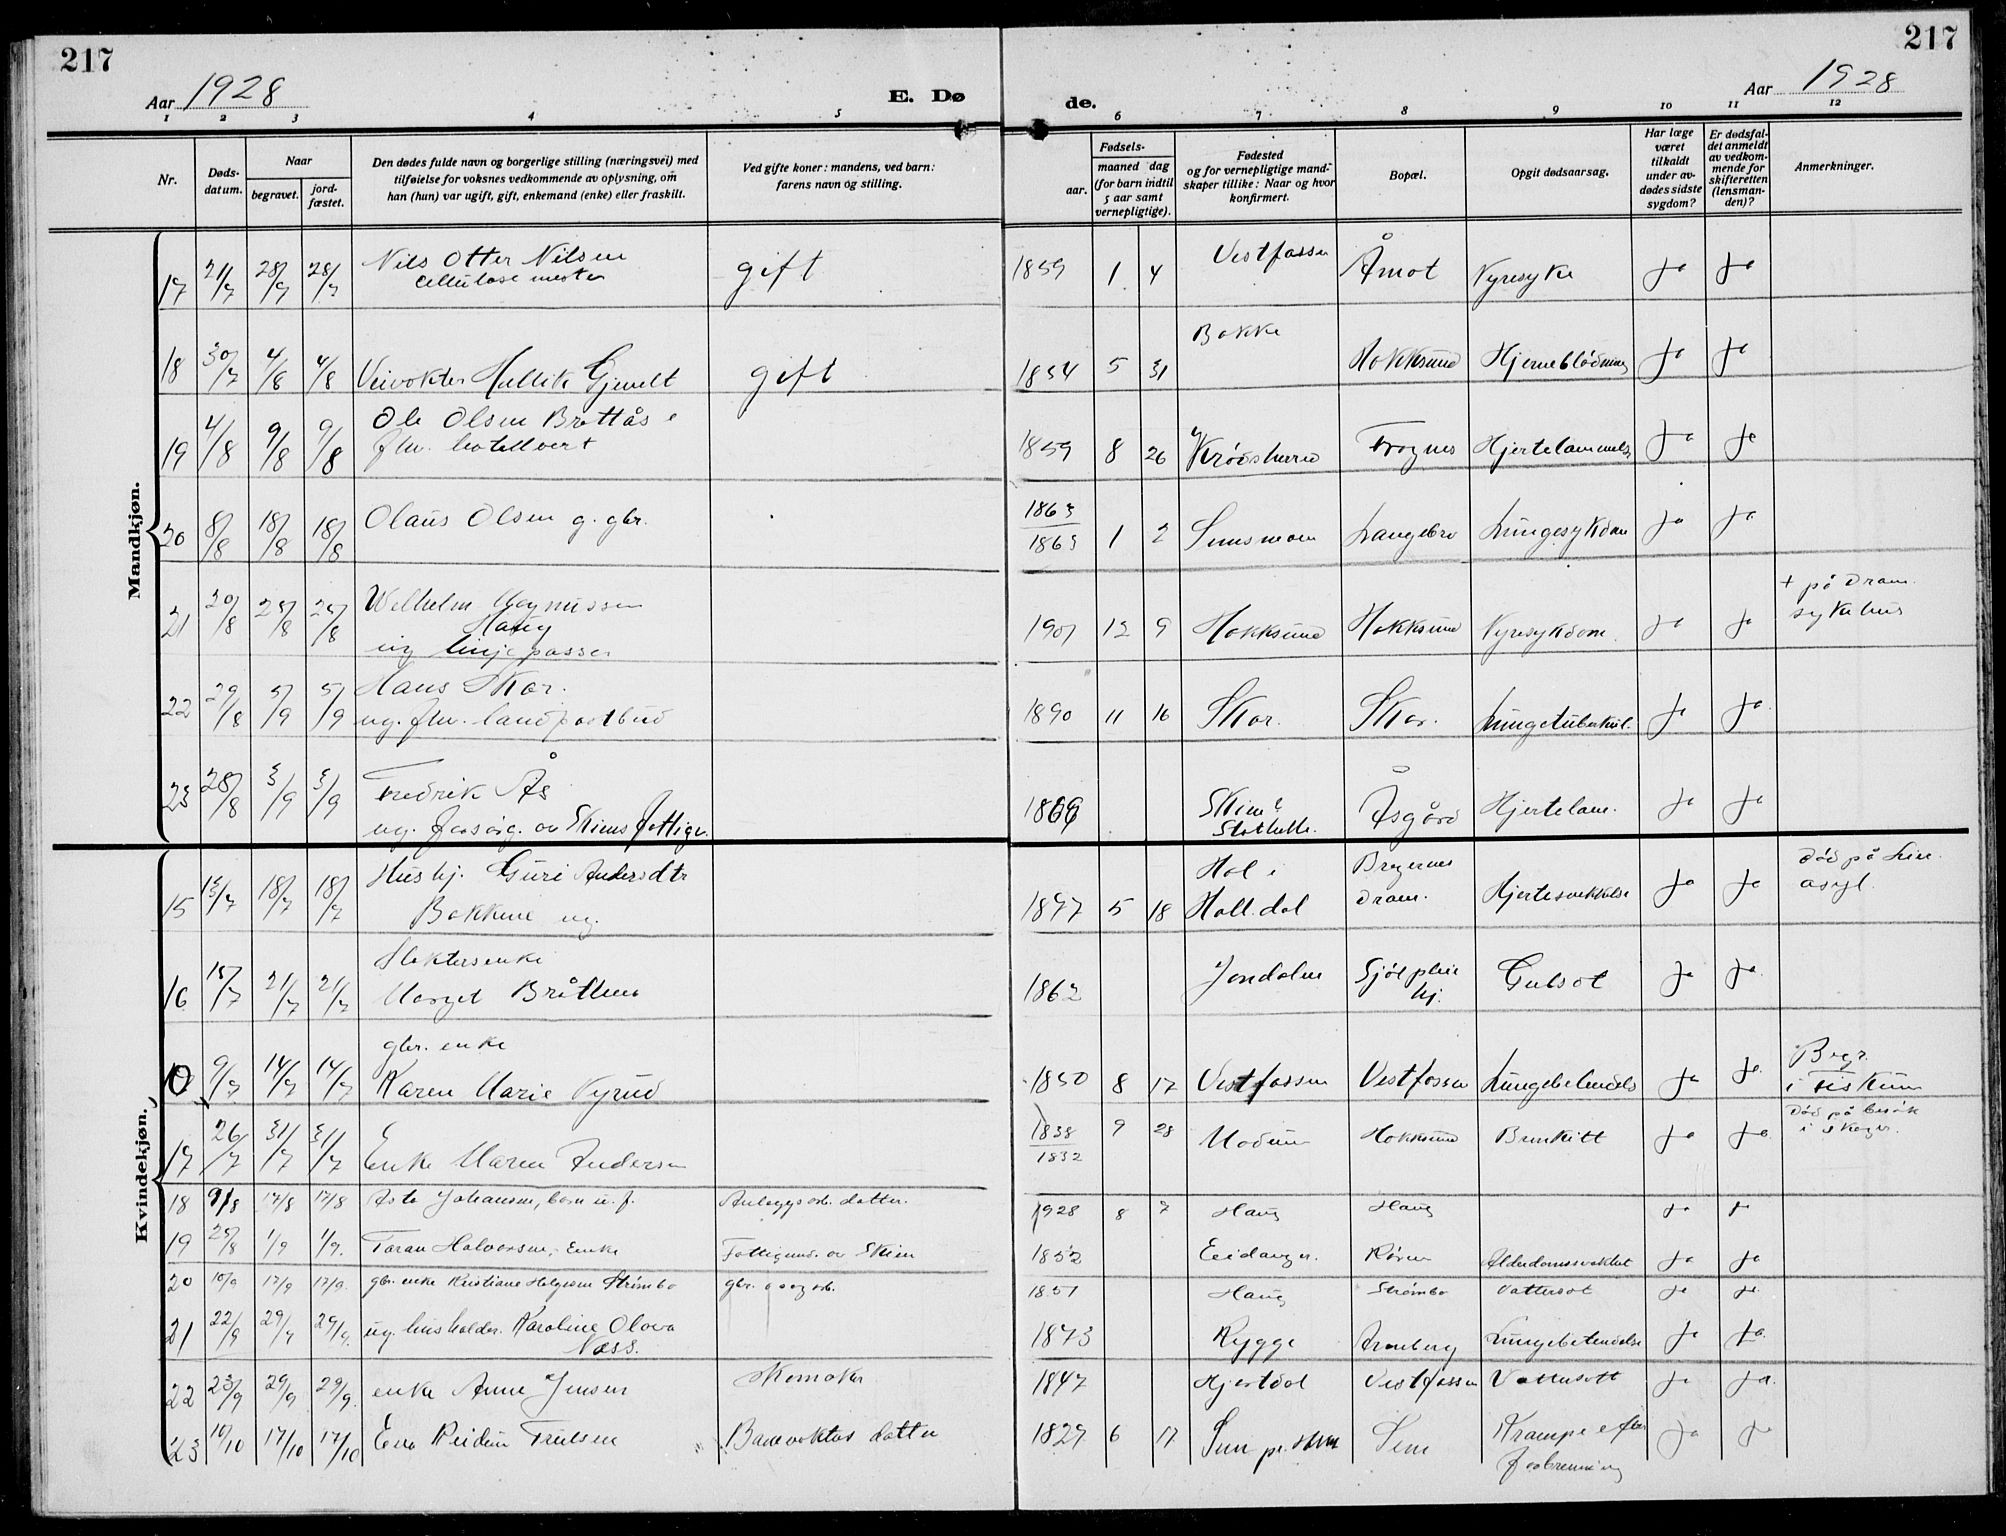 217
217
Aar 1928
E. Dø
de.
Aar 1928
1 2 3 4 5 6 7 8 9 10 11 12
Nr.
Døds-
datum.
Naar
begravet.
jord-
fæstet.
Den dødes fulde navn og borgerlige stilling (næringsvei) med
tilføielse for voksnes vedkommende av oplysning, om
han (hun) var ugift, gift, enkemand (enke) eller fraskilt.
Ved gifte koner: mandens, ved barn:
farens navn og stilling.
Fødsels-
aar.
maaned dag
(for barn indtil
5 aar samt
vernepligtige).
Fødested
og for vernepligtige mand-
skaper tillike: Naar og hvor
konfirmert.
Bopæl.
Opgit dødsaarsag.
Har læge
været
tilkaldt
under av-
dødes sidste
sygdom?
Er dødsfal-
det anmeldt
av vedkom-
mende for
skifteretten
(lensman-
den)?
Anmerkninger.
Mandkjøn.
17 21/7 28/7 28/7 Nils Otter Nilsen gift 1859 1 4 Vestfossen Åmot Nyresyke Ja Ja
Cellulosemester
18 30/7 4/8 4/8 Veivokter Hellik Gjevelt gift 1854 5 31 Bakke Hokksund Hjerneblødning Ja Ja
19 4/8 9/8 9/8 Ole Olsen Bråtås 1859 8 26 Krødsherred Frognes Hjertelammelse Ja Ja
fhv. hotellvert
20 8/8 18/8 18/8 Olaus Olsen g. gbr. 1863 1 2 Langebro Lungesykdom Ja Ja
1865
21 20/8 25/8 25/8 Wilhelm Magnussen 1901 12 9 Hokksund Hokksund Nyresykdom. Ja Ja + på Dram.
Haug
sykehus
ug linjepasser
22 29/8 5/9 5/9 Hans Skar. 1890 11 16 Skar. Skar. Lungetuberkul. Ja Ja
ug. fhv. landpostbud
23 28/8 3/9 3/9 Fredrik Ås 1866 Åsgård Hjertelam. Ja Ja
ug. forsørg. av Skiens fattigv.
Kvindekjøn.
15 13/7 18/7 18/7 Hushj. Guri Andersdtr 1897 5 18 Hol i Bragernes Hjertesvekkelse Ja Ja død på Lier
Bakkene ug. Hall.dal Dram. asyl.
16 15/7 21/7 21/7 Slakterenke 1862 Jondalen Gulsot Ja Ja
Marget Bråthen hj.
gbr. enke
0 9/7 14/7 14/7 Karen Marie Nyrud 1850 8 17 Vestfossen Vestfossen Lungebetendels Ja Ja Begr.
i Fiskum
17 26/7 31/7 31/7 Enke Maren Andersen 1838 9 28 Modum Hokksund Bronkitt Ja Ja Død på besøk
1832 i Skoger.
18 9/8 17/8 17/8 Asta Johansen, barn u. f. Anleggsarb. datter. 1928 8 7 Haug Haug Ja Ja
19 25/8 1/9 1/9. Taran Halvorsen, Enke Fattigund. av Skien 1852 Eidanger. Røren Alderdomssvakhet Ja Ja
20 10/9 17/9 17/9. gbr. enke Kristiane Helgesen Strømbo gbr. og sagarb. 1851 Haug Strømbo Vattersot Ja Ja
21 22/9 29/9 29/9. ug. husholder. Karoline Olava 1873 Rygge Lungebetendelse Ja Ja.
Næss.
22 23/9 29/9 29/9. enke Anne Jensen Skomaker 1847 Hjertdal Vestfossen Vattersott Ja Ja.
23 10/10 17/10 17/10 Reidun Truelsen Banevokters datter 1827 6 17 Sem Krampe efter Ja Ja
forbrenning